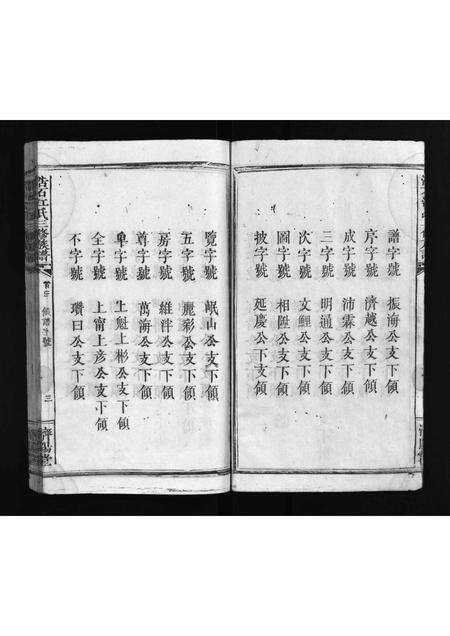 譜字號 振海公支下領
序字號 濟越公支下領
成字號 沛霖公支下領
三字號 明通公支下領
次字號 文鯉公支下領
圖字號 相陞公支下領
披字號 延慶公下支領
覽字號 岷山公支下領
五字號 麗彩公支下領
房字號 維泮公支下領
尊字號 萬海公支下領
卑字號 上魁上彬公支下領
全字號 上甯上彥公支下領
不字號 瓚曰公支下領
江氏三修族譜
領譜字號
三
濟陽堂